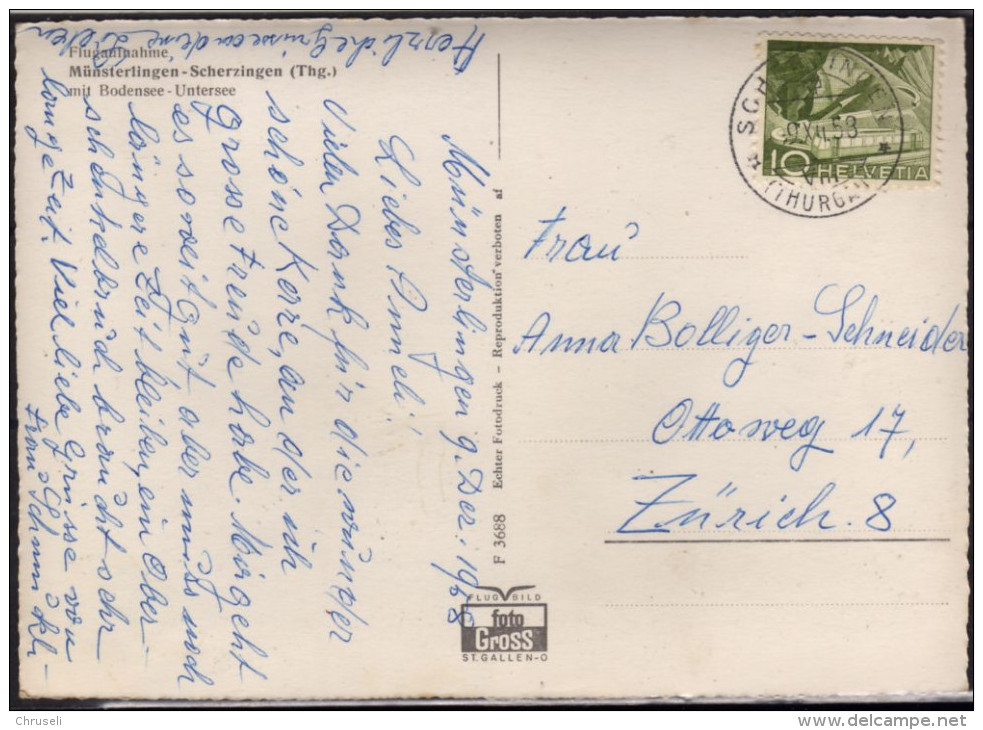 Herzliche Grüsse an deine Lieben
Flugaufnahme,
Münsterlingen-Scherzingen (Thg.)
mit Bodensee-Untersee
Münsterlingen 9. Dez. 1958
Liebes Anneli!
Vielen Dank für die wunder
schöne Kerze, an der ich
grosse Freude habe. Mir geht
es soweit gut aber muss noch
längere Zeit bleiben, ein Ober-
schenkelbruch braucht sehr
lange Zeit. Viel liebe Grüsse von
Frau
F 3688 Echter Fotodruck - Reproduktion verboten af
FLUG BILD
foto
Gross
ST. GALLEN-O
SCHERZINGEN
9.XII.58
(THURGAU)
10 HELVETIA
Frau
Anna Bolliger-Schneider
Ottoweg 17,
Zürich. 8
Chruseli
delcampe.net